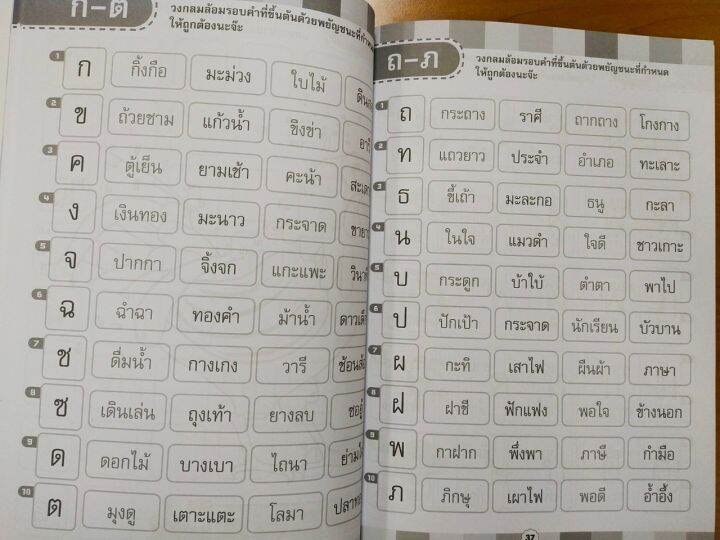 ก-ต
วงกลมล้อมรอบคำที่ขึ้นต้นด้วยพยัญชนะที่กำหนด
ให้ถูกต้องนะจ๊ะ
1 ก กิ้งกือ มะม่วง ใบไม้
2 ข ถ้วยชาม แก้วน้ำ ขิงข่า
3 ค ตู้เย็น ยามเช้า คะน้า
4 ง เงินทอง มะนาว กระจาด
5 จ ปากกา จิ้งจก แกะแพะ
6 ฉ ฉำฉา ทองคำ ม้าน้ำ
7 ช ดื่มน้ำ กางเกง วารี
8 ซ เดินเล่น ถุงเท้า ยางลบ
9 ด ดอกไม้ บางเบา ไถนา
10 ต มุงดู เตาะแตะ โลมา
ถ-ภ
วงกลมล้อมรอบคำที่ขึ้นต้นด้วยพยัญชนะที่กำหนด
ให้ถูกต้องนะจ๊ะ
1 ถ กระถาง ราศี ถากถาง โกงกาง
2 ท แถวยาว ประจำ อำเภอ ทะเลาะ
3 ธ ขี้เถ้า มะละกอ ธนู กะลา
4 น ในใจ แมวดำ ใจดี ชาวเกาะ
5 บ กระดูก บ้าใบ้ ตำตา พาไป
6 ป ปักเป้า กระจาด นักเรียน บัวบาน
7 ผ กะทิ เสาไฟ ผืนผ้า ภาษา
8 ฝ ฝาชี ฟักแฟง พอใจ ข้างนอก
9 พ กาฝาก พึ่งพา ภาษี กำมือ
10 ภ ภิกษุ เผาไฟ พอดี อ้ำอึ้ง
37